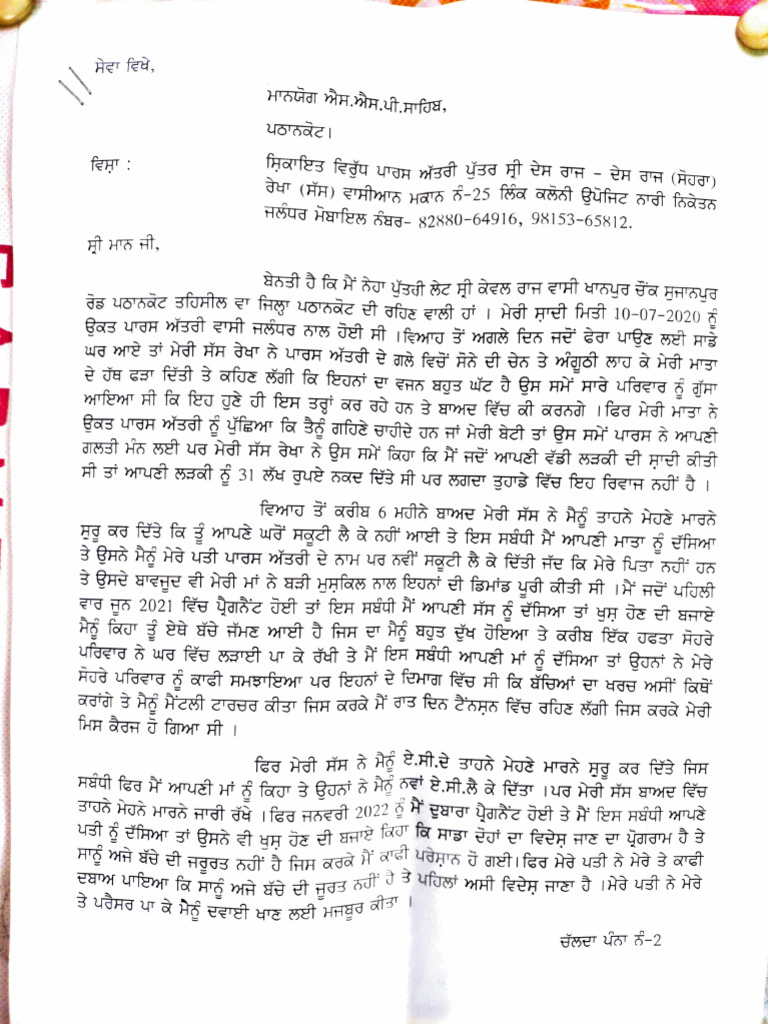 ਸੇਵਾ ਵਿਖੇ,
ਮਾਨਯੋਗ ਐਸ.ਐਸ.ਪੀ.ਸਾਹਿਬ,
ਪਠਾਨਕੋਟ।
ਵਿਸ਼ਾ :
ਸ਼ਿਕਾਇਤ ਵਿਰੁੱਧ ਪਾਰਸ ਅੱਤਰੀ ਪੁੱਤਰ ਸ਼੍ਰੀ ਦੇਸ ਰਾਜ – ਦੇਸ ਰਾਜ (ਸੋਹਰਾ)
ਰੇਖਾ (ਸੱਸ) ਵਾਸੀਆਨ ਮਕਾਨ ਨੰ-25 ਲਿੰਕ ਕਲੋਨੀ ਉਪੋਜਿਟ ਨਾਰੀ ਨਿਕੇਤਨ
ਜਲੰਧਰ ਮੋਬਾਇਲ ਨੰਬਰ- 82880-64916, 98153-65812.
ਸ਼੍ਰੀ ਮਾਨ ਜੀ,
ਬੇਨਤੀ ਹੈ ਕਿ ਮੈਂ ਨੇਹਾ ਪੁੱਤਰੀ ਲੇਟ ਸ਼੍ਰੀ ਕੇਵਲ ਰਾਜ ਵਾਸੀ ਖਾਨਪੁਰ ਚੌਂਕ ਸੁਜਾਨਪੁਰ
ਰੋਡ ਪਠਾਨਕੋਟ ਤਹਿਸੀਲ ਵਾ ਜਿਲ੍ਹਾ ਪਠਾਨਕੋਟ ਦੀ ਰਹਿਣ ਵਾਲੀ ਹਾਂ । ਮੇਰੀ ਸ਼ਾਦੀ ਮਿਤੀ 10-07-2020 ਨੂੰ
ਉਕਤ ਪਾਰਸ ਅੱਤਰੀ ਵਾਸੀ ਜਲੰਧਰ ਨਾਲ ਹੋਈ ਸੀ ।ਵਿਆਹ ਤੋਂ ਅਗਲੇ ਦਿਨ ਜਦੋਂ ਫੇਰਾ ਪਾਉਣ ਲਈ ਸਾਡੇ
ਘਰ ਆਏ ਤਾਂ ਮੇਰੀ ਸੱਸ ਰੇਖਾ ਨੇ ਪਾਰਸ ਅੱਤਰੀ ਦੇ ਗਲੇ ਵਿਚੋਂ ਸੋਨੇ ਦੀ ਚੇਨ ਤੇ ਅੰਗੂਠੀ ਲਾਹ ਕੇ ਮੇਰੀ ਮਾਤਾ
ਦੇ ਹੱਥ ਫੜਾ ਦਿੱਤੀ ਤੇ ਕਹਿਣ ਲੱਗੀ ਕਿ ਇਹਨਾਂ ਦਾ ਵਜਨ ਬਹੁਤ ਘੱਟ ਹੈ ਉਸ ਸਮੇਂ ਸਾਰੇ ਪਰਿਵਾਰ ਨੂੰ ਗੁੱਸਾ
ਆਇਆ ਸੀ ਕਿ ਇਹ ਹੁਣੇ ਹੀ ਇਸ ਤਰ੍ਹਾਂ ਕਰ ਰਹੇ ਹਨ ਤੇ ਬਾਅਦ ਵਿੱਚ ਕੀ ਕਰਨਗੇ ।ਫਿਰ ਮੇਰੀ ਮਾਤਾ ਨੇ
ਉਕਤ ਪਾਰਸ ਅੱਤਰੀ ਨੂੰ ਪੁੱਛਿਆ ਕਿ ਤੈਨੂੰ ਗਹਿਣੇ ਚਾਹੀਦੇ ਹਨ ਜਾਂ ਮੇਰੀ ਬੇਟੀ ਤਾਂ ਉਸ ਸਮੇਂ ਪਾਰਸ ਨੇ ਆਪਣੀ
ਗਲਤੀ ਮੰਨ ਲਈ ਪਰ ਮੇਰੀ ਸੱਸ ਰੇਖਾ ਨੇ ਉਸ ਸਮੇਂ ਕਿਹਾ ਕਿ ਮੈਂ ਜਦੋਂ ਆਪਣੀ ਵੱਡੀ ਲੜਕੀ ਦੀ ਸ਼ਾਦੀ ਕੀਤੀ
ਸੀ ਤਾਂ ਆਪਣੀ ਲੜਕੀ ਨੂੰ 31 ਲੱਖ ਰੁਪਏ ਨਕਦ ਦਿੱਤੇ ਸੀ ਪਰ ਲਗਦਾ ਤੁਹਾਡੇ ਵਿੱਚ ਇਹ ਰਿਵਾਜ ਨਹੀਂ ਹੈ ।
ਵਿਆਹ ਤੋਂ ਕਰੀਬ 6 ਮਹੀਨੇ ਬਾਅਦ ਮੇਰੀ ਸੱਸ ਨੇ ਮੈਨੂੰ ਤਾਹਨੇ ਮੇਹਣੇ ਮਾਰਨੇ
ਸ਼ੁਰੂ ਕਰ ਦਿੱਤੇ ਕਿ ਤੂੰ ਆਪਣੇ ਘਰੋਂ ਸਕੂਟੀ ਲੈ ਕੇ ਨਹੀਂ ਆਈ ਤੇ ਇਸ ਸਬੰਧੀ ਮੈਂ ਆਪਣੀ ਮਾਤਾ ਨੂੰ ਦੱਸਿਆ
ਤੇ ਉਸਨੇ ਮੈਨੂੰ ਮੇਰੇ ਪਤੀ ਪਾਰਸ ਅੱਤਰੀ ਦੇ ਨਾਮ ਪਰ ਨਵੀਂ ਸਕੂਟੀ ਲੈ ਕੇ ਦਿੱਤੀ ਜੱਦ ਕਿ ਮੇਰੇ ਪਿਤਾ ਨਹੀਂ ਹਨ
ਤੇ ਉਸਦੇ ਬਾਵਜੂਦ ਵੀ ਮੇਰੀ ਮਾਂ ਨੇ ਬੜੀ ਮੁਸ਼ਕਿਲ ਨਾਲ ਇਹਨਾਂ ਦੀ ਡਿਮਾਂਡ ਪੂਰੀ ਕੀਤੀ ਸੀ ।ਮੈਂ ਜਦੋਂ ਪਹਿਲੀ
ਵਾਰ ਜੂਨ 2021 ਵਿੱਚ ਪ੍ਰੈਗਨੈਂਟ ਹੋਈ ਤਾਂ ਇਸ ਸਬੰਧੀ ਮੈਂ ਆਪਣੀ ਸੱਸ ਨੂੰ ਦੱਸਿਆ ਤਾਂ ਖੁਸ਼ ਹੋਣ ਦੀ ਬਜਾਏ
ਮੈਨੂੰ ਕਿਹਾ ਤੂੰ ਏਥੇ ਬੱਚੇ ਜੱਮਣ ਆਈ ਹੈ ਜਿਸ ਦਾ ਮੈਨੂੰ ਬਹੁਤ ਦੁੱਖ ਹੋਇਆ ਤੇ ਕਰੀਬ ਇੱਕ ਹਫਤਾ ਸੋਹਰੇ
ਪਰਿਵਾਰ ਨੇ ਘਰ ਵਿੱਚ ਲੜਾਈ ਪਾ ਕੇ ਰੱਖੀ ਤੇ ਮੈਂ ਇਸ ਸਬੰਧੀ ਆਪਣੀ ਮਾਂ ਨੂੰ ਦੱਸਿਆ ਤਾਂ ਉਹਨਾਂ ਨੇ ਮੇਰੇ
ਸੋਹਰੇ ਪਰਿਵਾਰ ਨੂੰ ਕਾਫੀ ਸਮਝਾਇਆ ਪਰ ਇਹਨਾਂ ਦੇ ਦਿਮਾਗ ਵਿੱਚ ਸੀ ਕਿ ਬੱਚਿਆਂ ਦਾ ਖਰਚ ਅਸੀਂ ਕਿਥੋਂ
ਕਰਾਂਗੇ ਤੇ ਮੈਨੂੰ ਮੈਂਟਲੀ ਟਾਰਚਰ ਕੀਤਾ ਜਿਸ ਕਰਕੇ ਮੈਂ ਰਾਤ ਦਿਨ ਟੈਂਨਸ਼ਨ ਵਿੱਚ ਰਹਿਣ ਲੱਗੀ ਜਿਸ ਕਰਕੇ ਮੇਰੀ
ਮਿਸ ਕੈਰਜ ਹੋ ਗਿਆ ਸੀ ।
ਫਿਰ ਮੇਰੀ ਸੱਸ ਨੇ ਮੈਨੂੰ ਏ.ਸੀ.ਦੇ ਤਾਹਨੇ ਮੇਹਣੇ ਮਾਰਨੇ ਸ਼ੁਰੂ ਕਰ ਦਿੱਤੇ ਜਿਸ
ਸਬੰਧੀ ਫਿਰ ਮੈਂ ਆਪਣੀ ਮਾਂ ਨੂੰ ਕਿਹਾ ਤੇ ਉਹਨਾਂ ਨੇ ਮੈਨੂੰ ਨਵਾਂ ਏ.ਸੀ.ਲੈ ਕੇ ਦਿੱਤਾ ।ਪਰ ਮੇਰੀ ਸੱਸ ਬਾਅਦ ਵਿੱਚ
ਤਾਹਨੇ ਮੇਹਨੇ ਮਾਰਨੇ ਜਾਰੀ ਰੱਖੇ ।ਫਿਰ ਜਨਵਰੀ 2022 ਨੂੰ ਮੈਂ ਦੁਬਾਰਾ ਪ੍ਰੈਗਨੈਂਟ ਹੋਈ ਤੇ ਮੈਂ ਇਸ ਸਬੰਧੀ ਆਪਣੇ
ਪਤੀ ਨੂੰ ਦੱਸਿਆ ਤਾਂ ਉਸਨੇ ਵੀ ਖੁਸ਼ ਹੋਣ ਦੀ ਬਜਾਏ ਕਿਹਾ ਕਿ ਸਾਡਾ ਦੋਹਾਂ ਦਾ ਵਿਦੇਸ਼ ਜਾਣ ਦਾ ਪ੍ਰੋਗਰਾਮ ਹੈ ਤੇ
ਸਾਨੂੰ ਅਜੇ ਬੱਚੇ ਦੀ ਜਰੂਰਤ ਨਹੀਂ ਹੈ ਜਿਸ ਕਰਕੇ ਮੈਂ ਕਾਫੀ ਪਰੇਸ਼ਾਨ ਹੋ ਗਈ।ਫਿਰ ਮੇਰੇ ਪਤੀ ਨੇ ਮੇਰੇ ਤੇ ਕਾਫੀ
ਦਬਾਅ ਪਾਇਆ ਕਿ ਸਾਨੂੰ ਅਜੇ ਬੱਚੇ ਦੀ ਜੂਰਤ ਨਹੀਂ ਹੈ ਤੇ ਪਹਿਲਾਂ ਅਸੀ ਵਿਦੇਸ਼ ਜਾਣਾ ਹੈ ।ਮੇਰੇ ਪਤੀ ਨੇ ਮੇਰੇ
ਤੇ ਪਰੈਸਰ ਪਾ ਕੇ ਮੈਨੂੰ ਦਵਾਈ ਖਾਣ ਲਈ ਮਜਬੂਰ ਕੀਤਾ ।
ਚੱਲਦਾ ਪੰਨਾ ਨੰ-2